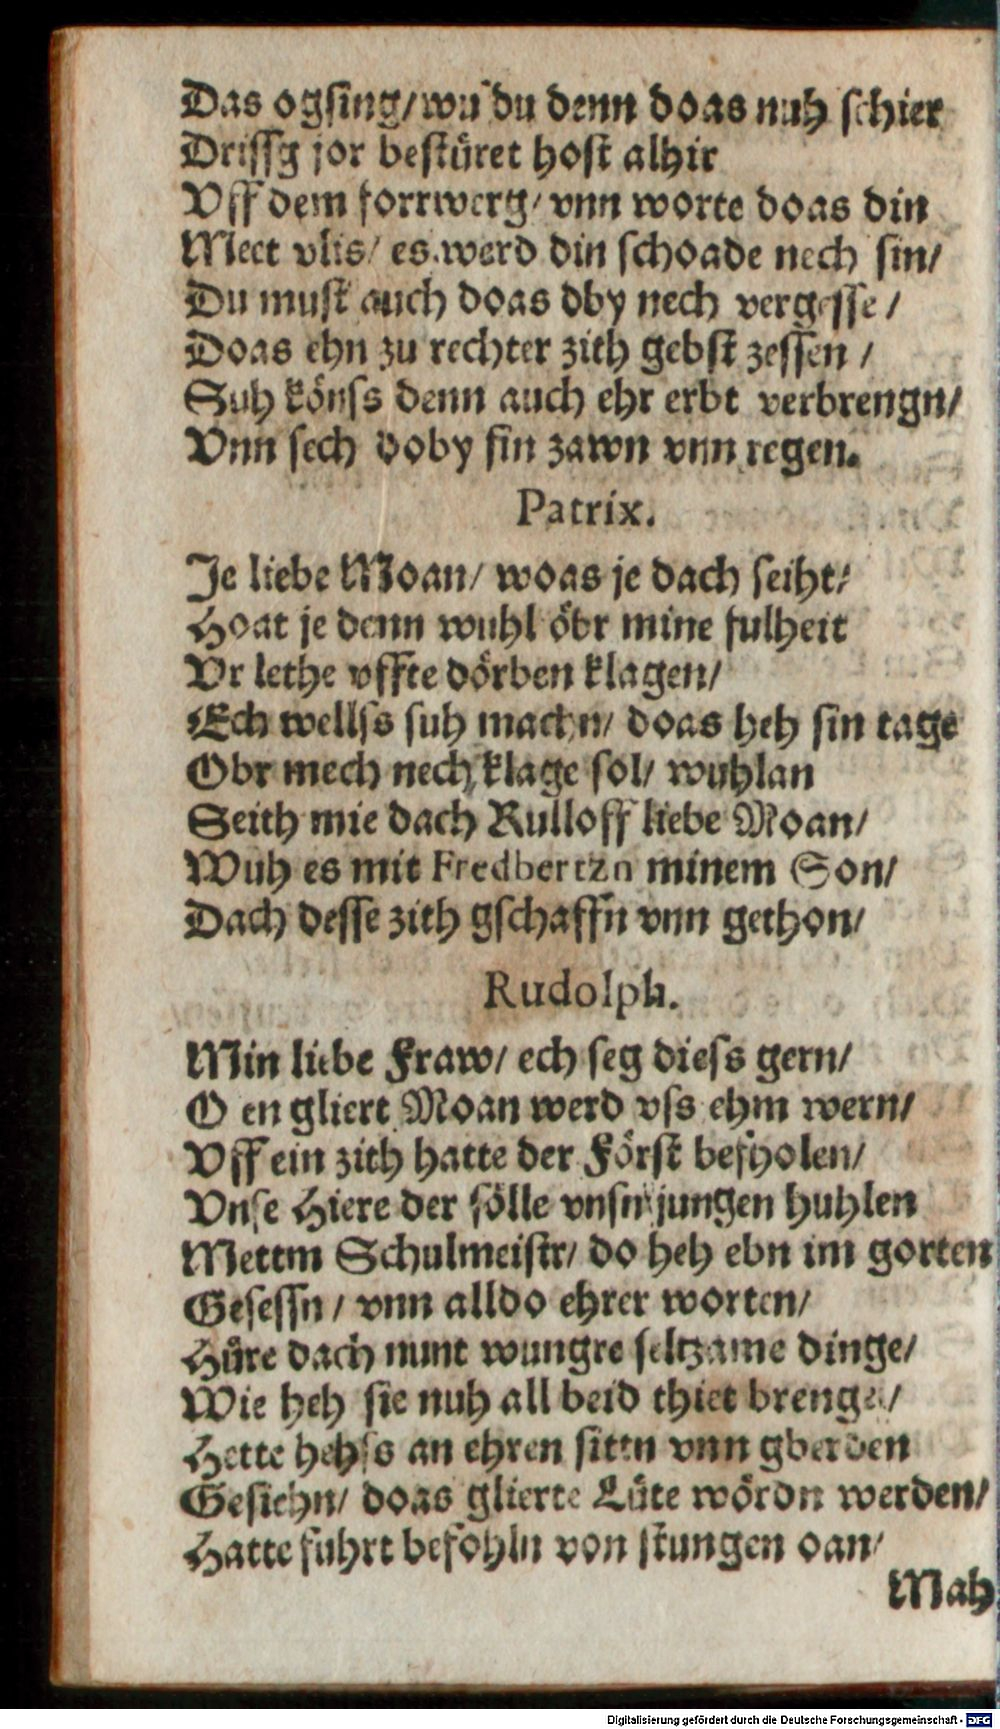 Das ogsing/ wu du denn doas nuh schier
Drissg jor bestüret host alhir
Vff dem forrwerg/ vnn worte doas din
Meet vlis/ es werd din schoade nech sin/
Du must auch doas dby nech vergesse/
Doas ehn zu rechter zith gebst zessen/
Suh könss denn auch ehr erbt verbrengn/
Vnn sech doby fin zawn vnn regen.
Patrix.
Je liebe Moan/ woas je dach seiht/
Hoat je denn wuhl öbr mine fulheit
Vr lethe vffte dörben klagen/
Ech wellss suh machn/ doas heh sin tage
Obr mech nech klage sol/ wuhlan
Seith mie dach Rulloff liebe Moan/
Wuh es mit Fredbertzn minem Son/
Dach desse zith gschaffn vnn gethon/
Rudolph.
Min liebe Fraw/ ech seg diess gern/
O en gliert Moan werd vss ehm wern/
Vff ein zith hatte der Först befholen/
Vnse Hiere der sölle vnsn jungen huhlen
Mettm Schulmeistr/ do heh ebn im gorten
Gesessn/ vnn alldo ehrer worten/
Hüre dach nunt wungre seltzame dinge/
Wie heh sie nuh all beid thiet brenge/
Hette hehss an ehren sittn vnn gberden
Gesiehn/ doas glierte Lüte wördn werden/
Hatte fuhrt befohln von stungen oan/
Mah
Digitalisierung gefördert durch die Deutsche Forschungsgemeinschaft - DFG